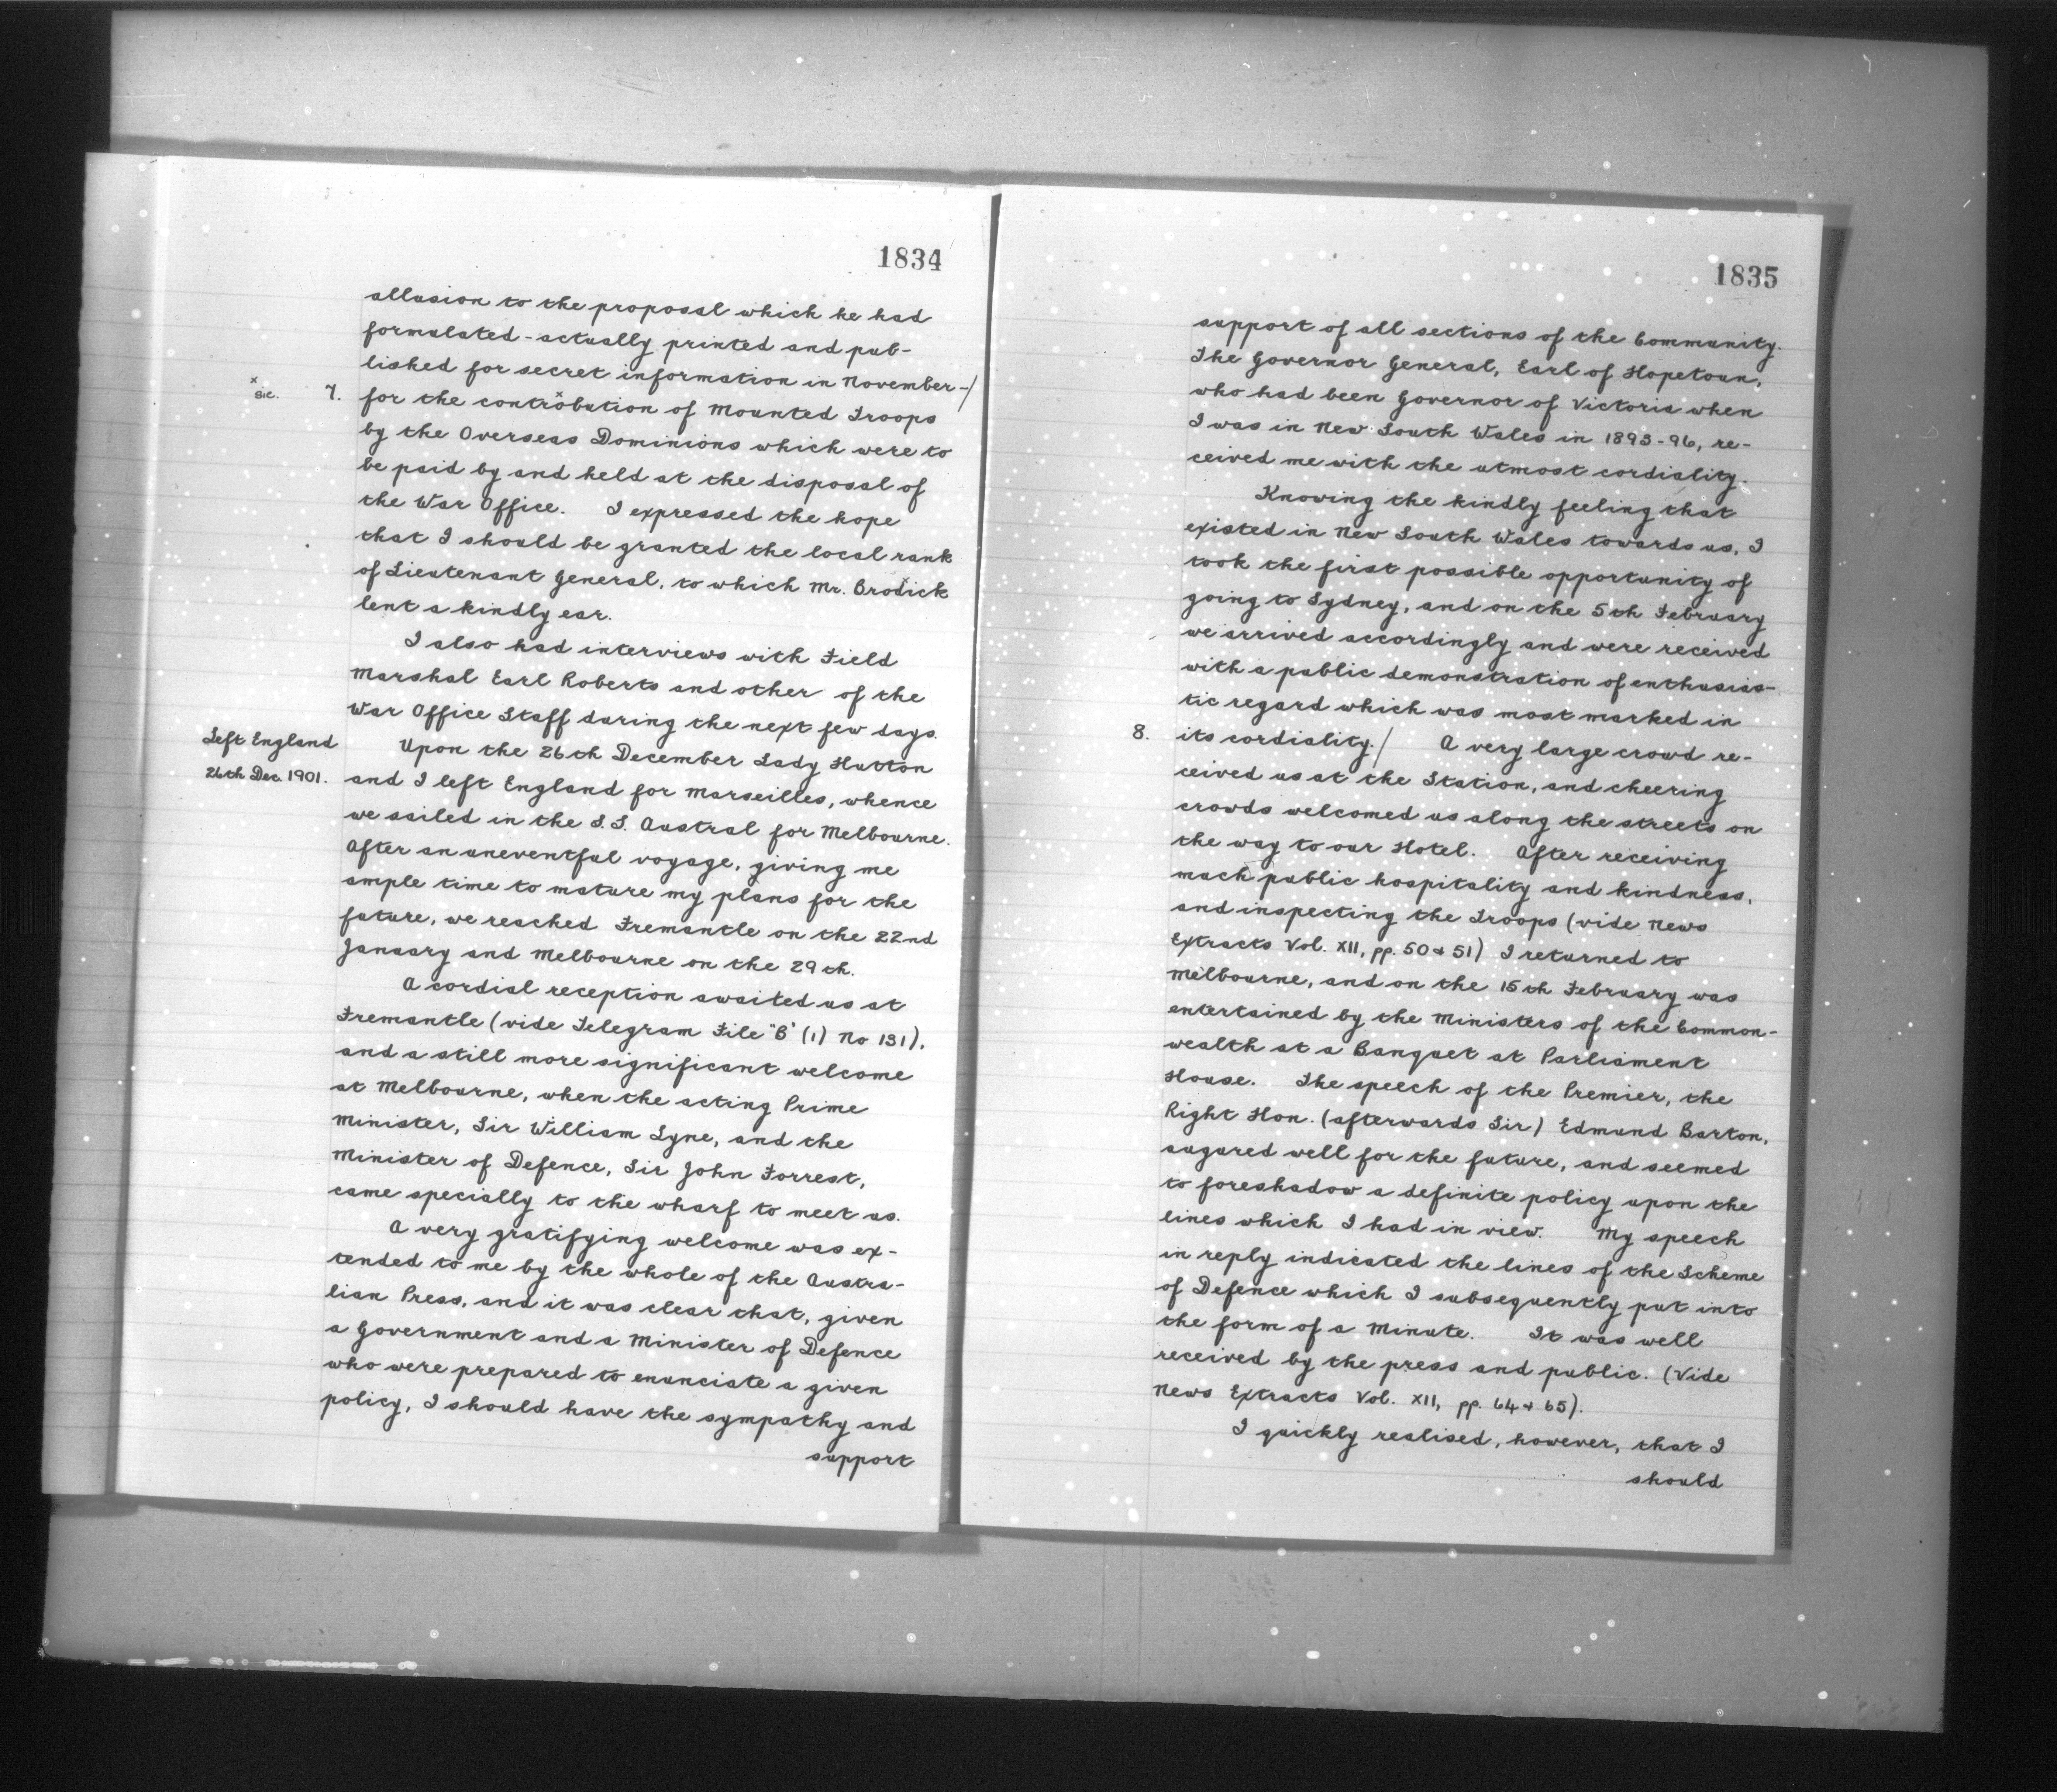 1834
allusion to the proposal which he had
formulated - actually printed and pub-
lished for secret information in November -/
x
sic. 7. for the controbution of Mounted Troops
by the Overseas Dominions which were to
be paid by and held at the disposal of
the War Office. I expressed the hope
that I should be granted the local rank
of Lieutenant General, to which Mr. Brodick
lent a kindly ear.
I also had interviews with Field
Marshal Earl Roberts and other of the
War Office Staff during the next few days.
Left England
26th Dec. 1901.
Upon the 26th December Lady Hutton
and I left England for Marseilles, whence
we sailed in the S.S. Austral for Melbourne.
After an uneventful voyage, giving me
ample time to mature my plans for the
future, we reached Fremantle on the 22nd
January and Melbourne on the 29th.
A cordial reception awaited us at
Fremantle (vide Telegram File "B" (1) No 131),
and a still more significant welcome
at Melbourne, when the acting Prime
Minister, Sir William Lyne, and the
Minister of Defence, Sir John Forrest,
came specially to the wharf to meet us.
A very gratifying welcome was ex-
tended to me by the whole of the Austra-
lian Press, and it was clear that, given
a Government and a Minister of Defence
who were prepared to enunciate a given
policy, I should have the sympathy and
support
1835
support of all sections of the Community.
The Governor General, Earl of Hopetoun,
who had been Governor of Victoria when
I was in New South Wales in 1893-96, re-
ceived me with the utmost cordiality.
Knowing the kindly feeling that
existed in New South Wales towards us, I
took the first possible opportunity of
going to Sydney, and on the 5th February
we arrived accordingly and were received
with a public demonstration of enthusias-
tic regard which was most marked in
8. its cordiality./ A very large crowd re-
ceived us at the Station, and cheering
crowds welcomed us along the streets on
the way to our Hotel. After receiving
much public hospitality and kindness,
and inspecting the Troops (vide News
Extracts Vol. XII, pp. 50 & 51) I returned to
Melbourne, and on the 15th February was
entertained by the Ministers of the Common-
wealth at a Banquet at Parliament
House. The speech of the Premier, the
Right Hon. (afterwards Sir) Edmund Barton,
augured well for the future, and seemed
to foreshadow a definite policy upon the
lines which I had in view. My speech
in reply indicated the lines of the Scheme
of Defence which I subsequently put into
the form of a Minute. It was well
received by the press and public. (Vide
News Extracts Vol. XII, pp. 64 & 65).
I quickly realised, however, that I
should